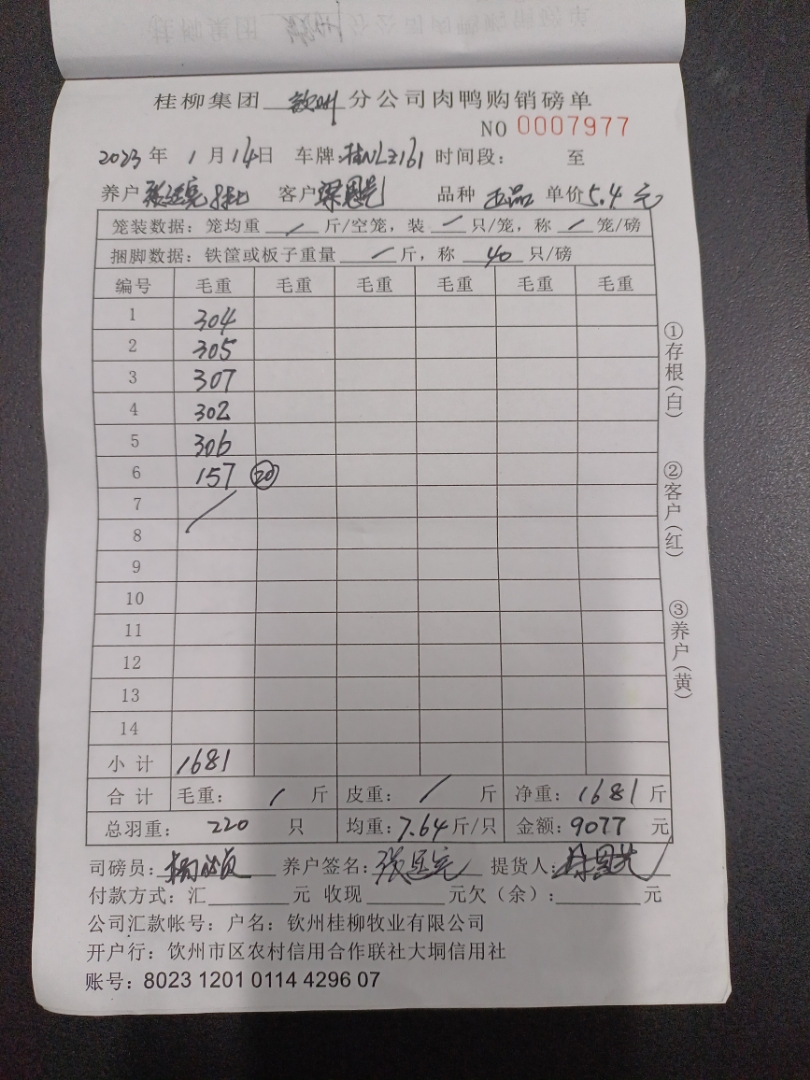 桂柳集团 钦州 分公司肉鸭购销磅单
NO 0007977
2023 年 1 月 14日 车牌: 桂NLZ161 时间段： 至
养户 客户 梁恩 品种 正品 单价 5.4 元
笼装数据：笼均重 / 斤/空笼，装 / 只/笼，称 / 笼/磅
捆脚数据：铁筐或板子重量 / 斤，称 40 只/磅
编号 毛重 毛重 毛重 毛重 毛重 毛重
1 304
2 305
3 307
4 302
5 306
6 157 20
7
8
9
10
11
12
13
14
小计 1681
合计 毛重： / 斤 皮重： / 斤 净重：1681 斤
总羽重： 220 只 均重：7.64 斤/只 金额：9077 元
司磅员： 养户签名： 提货人：
付款方式：汇 元 收现 元欠（余）： 元
公司汇款帐号：户名：钦州桂柳牧业有限公司
开户行：饮州市区农村信用合作联社大垌信用社
账号：8023 1201 0114 4296 07
①存根(白)
②客户(红)
③养户(黄)